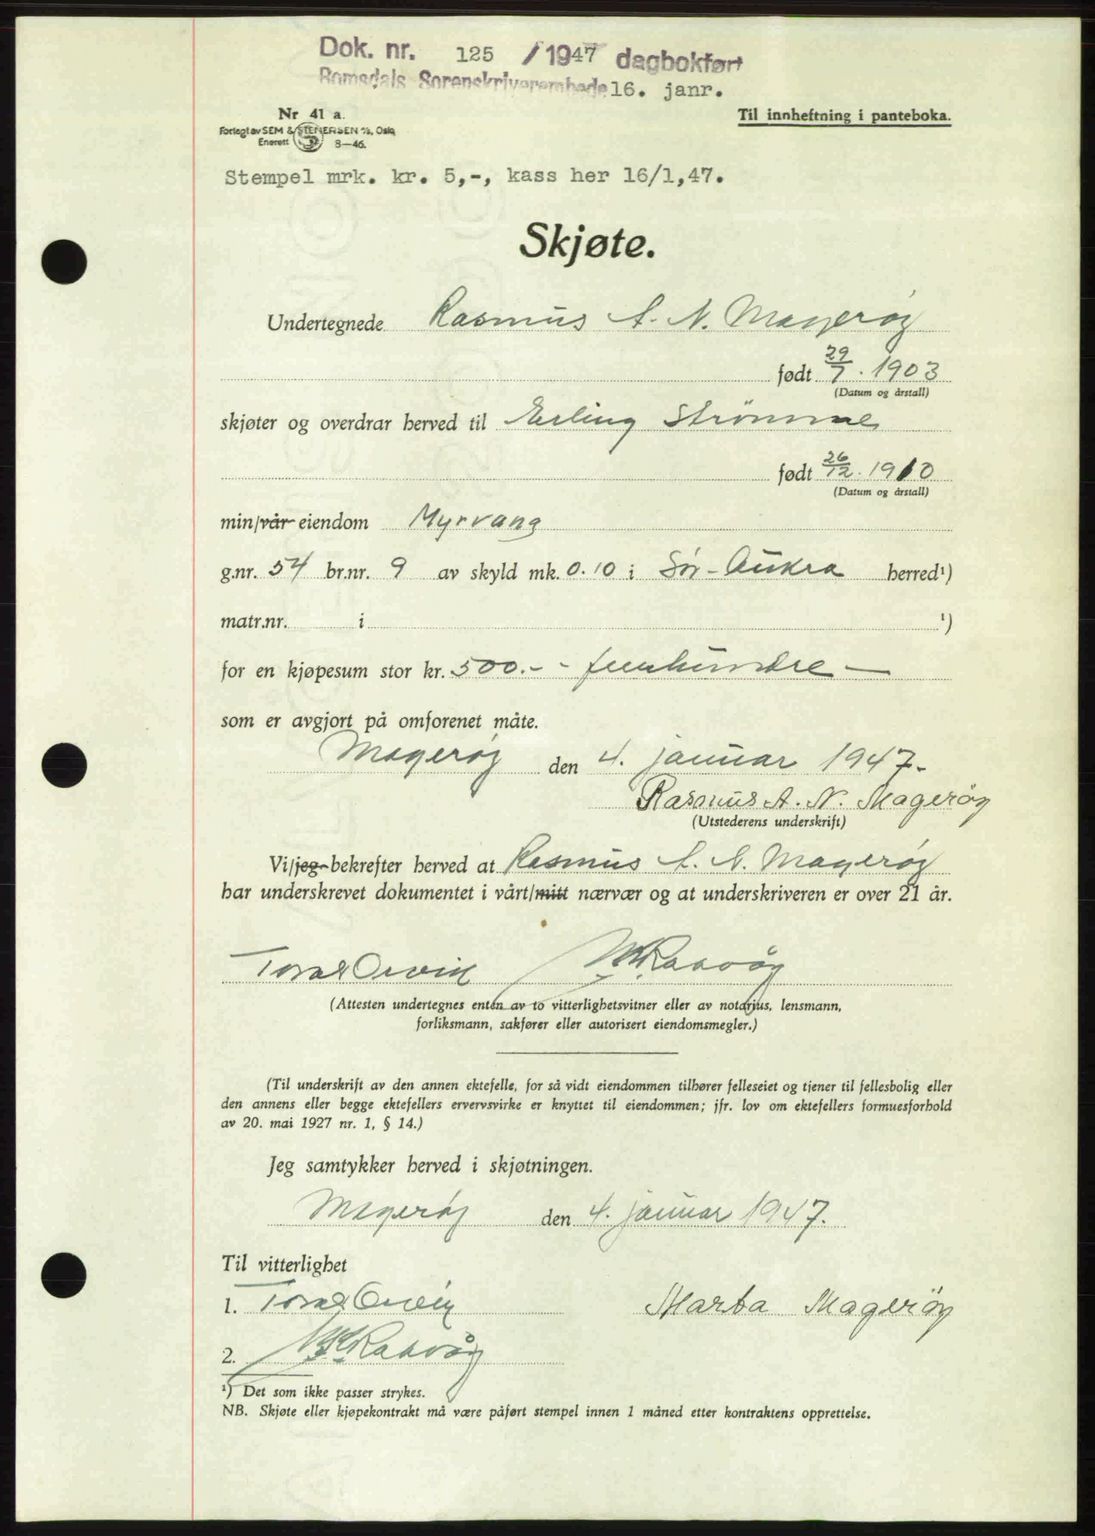 Dok. nr. 125 / 1947 dagbokført
Romsdals Sorenskriverembede 16. janr.
Nr 41 a.
Til innheftning i panteboka.
Forlagt av SEM & STENERSEN A/S, Oslo
Enerett 8—46.
Stempel mrk. kr. 5,-, kass her 16/1,47.
Skjøte.
Undertegnede Rasmus A. N. Magerøy
født 29/7. 1903
(Datum og årstall)
skjøter og overdrar herved til Erling Strømme
født 26/12. 1910
(Datum og årstall)
min/vår eiendom Myrvang
g.nr. 54 br.nr. 9 av skyld mk. 0.10 i Sør-Aukra herred¹)
matr.nr. i ¹)
for en kjøpesum stor kr. 500.- - femhundre —
som er avgjort på omforenet måte.
Magerøy den 4. januar 1947.-
Rasmus A. N. Magerøy
(Utstederens underskrift)
Vi/jeg bekrefter herved at Rasmus A. N. Magerøy
har underskrevet dokumentet i vårt/mitt nærvær og at underskriveren er over 21 år.
(Attesten undertegnes enten av to vitterlighetsvitner eller av notarius, lensmann,
forliksmann, sakfører eller autorisert eiendomsmegler.)
(Til underskrift av den annen ektefelle, for så vidt eiendommen tilhører felleseiet og tjener til fellesbolig eller
den annens eller begge ektefellers ervervsvirke er knyttet til eiendommen; jfr. lov om ektefellers formuesforhold
av 20. mai 1927 nr. 1, § 14.)
Jeg samtykker herved i skjøtningen.
Magerøy den 4. januar 1947.
Til vitterlighet
1. Marta Magerøy
2.
¹) Det som ikke passer strykes.
NB. Skjøte eller kjøpekontrakt må være påført stempel innen 1 måned etter kontraktens opprettelse.